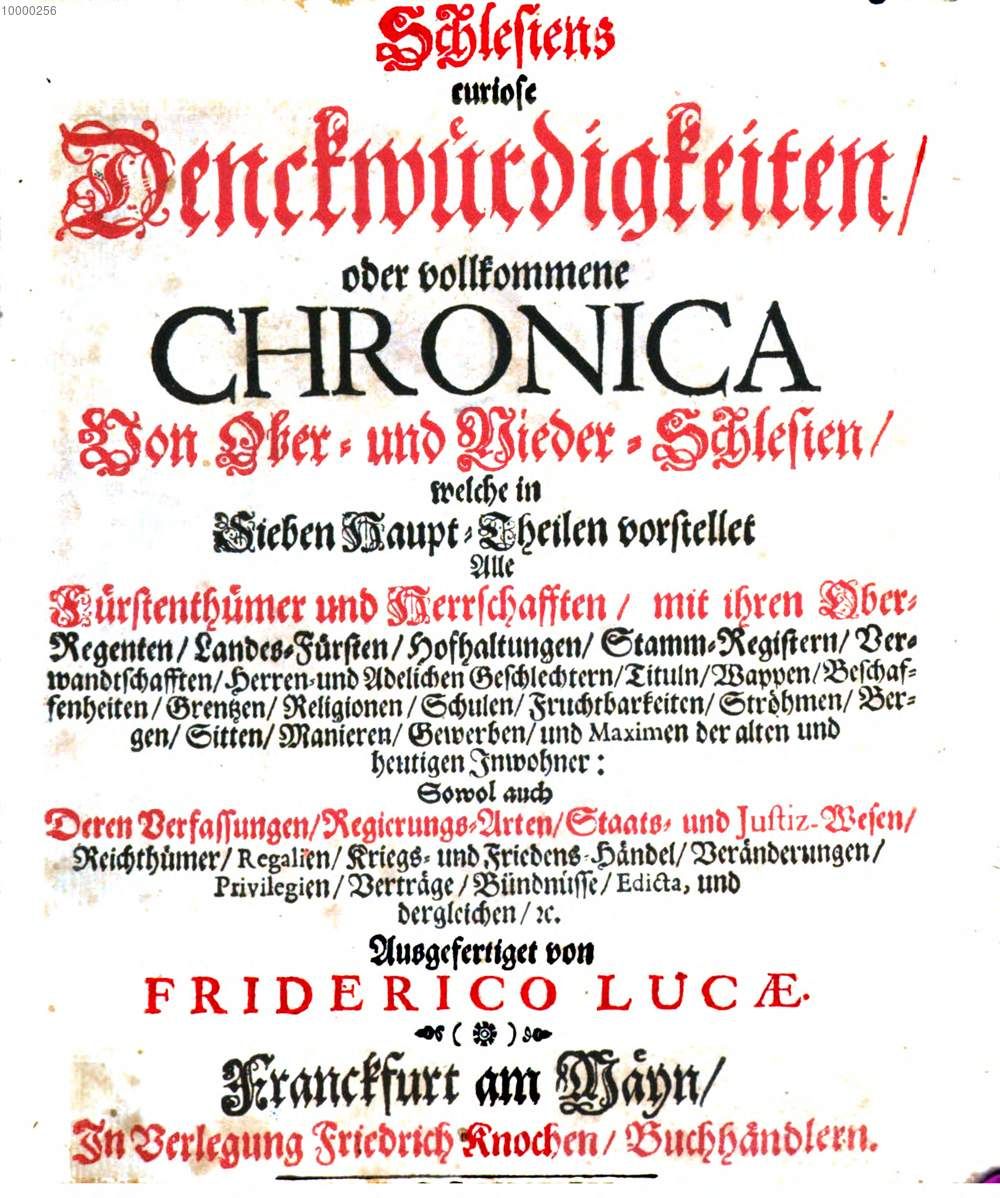 10000256
Schlesiens
curiose
Denckwürdigkeiten/
oder vollkommene
CHRONICA
Von Ober- und Nieder-Schlesien/
welche in
Sieben Haupt-Theilen vorstellet
Alle
Fürstenthümer und Herrschafften/ mit ihren Ober-
Regenten/ Landes-Fürsten/ Hofhaltungen/ Stamm-Registern/ Ver-
wandtschafften/ Herren-und Adelichen Geschlechtern/ Tituln/ Wappen/ Beschaf-
fenheiten/ Grentzen/ Religionen/ Schulen/ Fruchtbarkeiten/ Ströhmen/ Ber-
gen/ Sitten/ Manieren/ Gewerben/ und Maximen der alten und
heutigen Inwohner:
Sowol auch
Deren Verfassungen/ Regierungs-Arten/ Staats- und Justiz-Wesen/
Reichthümer/ Regalien/ Kriegs- und Friedens-Händel/ Veränderungen/
Privilegien/ Verträge/ Bündnüsse/ Edicta, und
dergleichen/ ꝛc.
Ausgefertiget von
FRIDERICO LUCÆ.
Franckfurt am Mäyn/
In Verlegung Friedrich Knochen/ Buchhändlern.